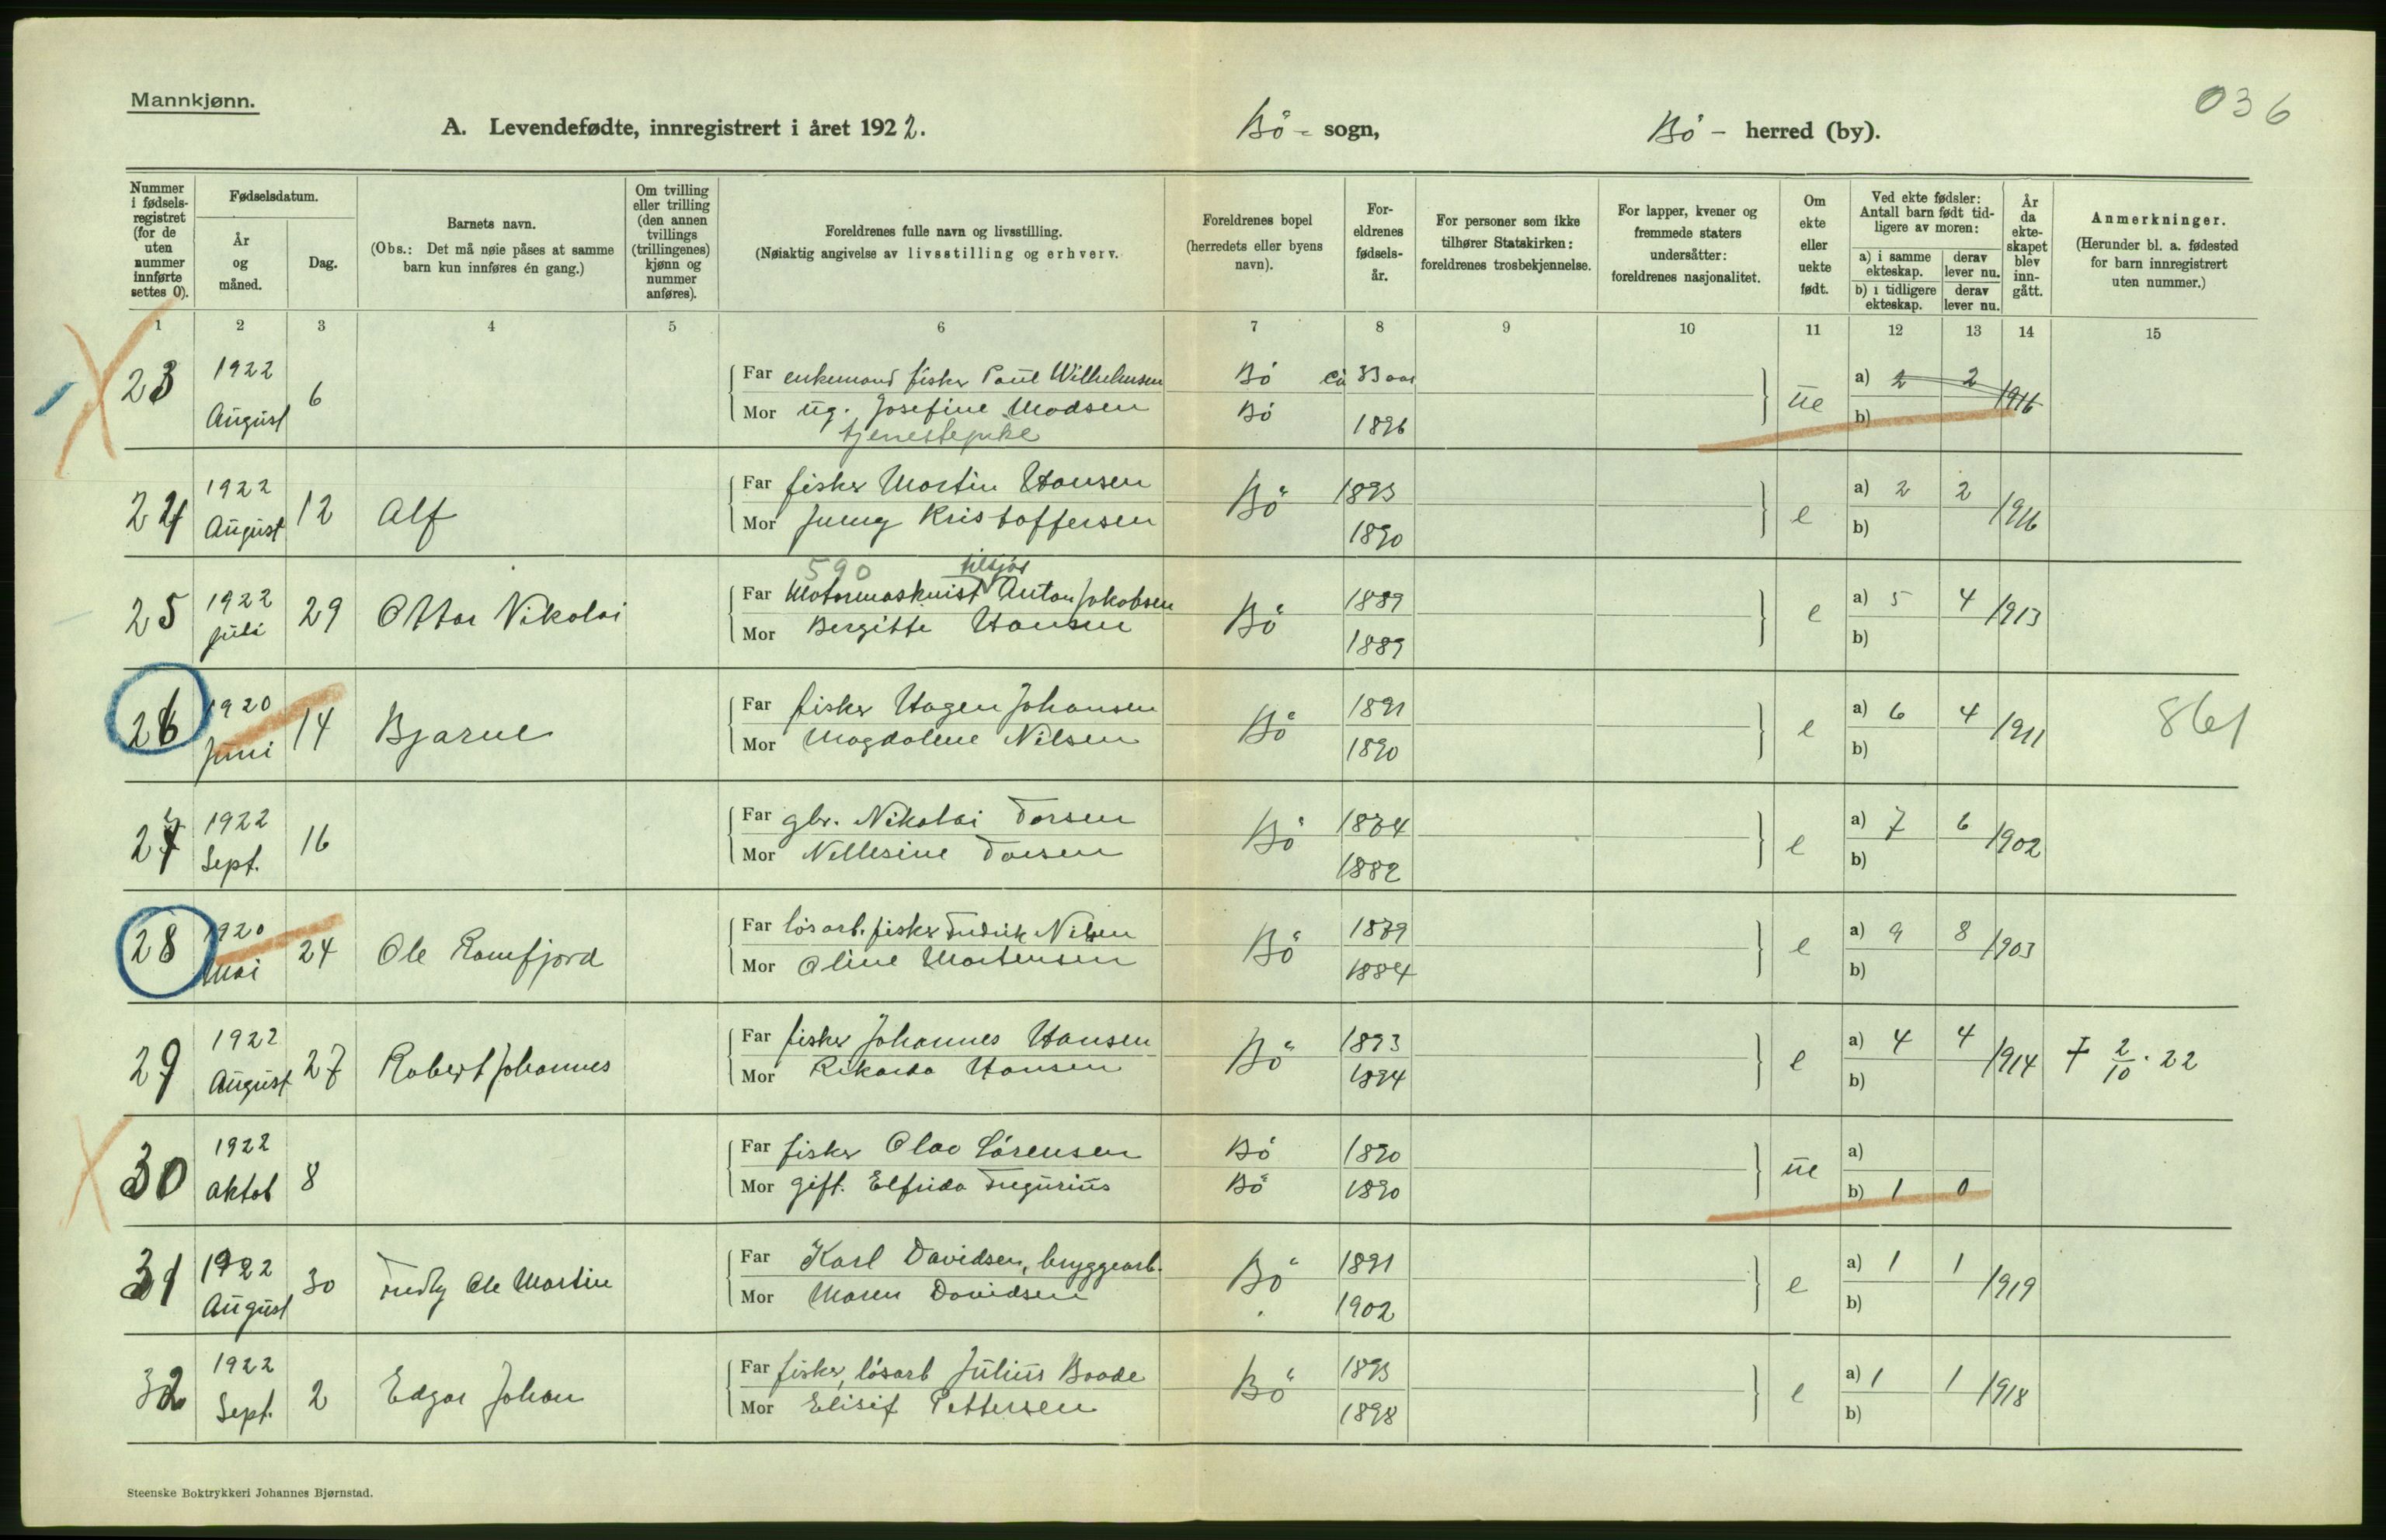 Mannkjønn.
036
A. Levendefødte, innregistrert i året 1922.
Bö - sogn,
Bö - herred (by).
Nummer i fødsels-registret (for de uten nummer innførte settes 0).
Fødselsdatum.
År og måned.
Dag.
Barnets navn.
(Obs.: Det må nøie påses at samme barn kun innføres én gang.)
Om tvilling eller trilling (den annen tvillings (trillingenes) kjønn og nummer anføres).
Foreldrenes fulle navn og livsstilling.
(Nøiaktig angivelse av livsstilling og erhverv.
Foreldrenes bopel (herredets eller byens navn).
For-eldrenes fødsels-år.
For personer som ikke tilhører Statskirken: foreldrenes trosbekjennelse.
For lapper, kvener og fremmede staters undersåtter: foreldrenes nasjonalitet.
Om ekte eller uekte født.
Ved ekte fødsler: Antall barn født tid-ligere av moren:
a) i samme ekteskap. derav lever nu.
b) i tidligere ekteskap. derav lever nu.
År da ekte-skapet blev inn-gått.
Anmerkninger.
(Herunder bl. a. fødested for barn innregistrert uten nummer.)
1 2 3 4 5 6 7 8 9 10 11 12 13 14 15
23 1922 August 6 Far enkemand fisker Paul Wilhelmsen Bö ca 33 aar ue a) 2 2 1916
Mor ug. Josefine Madsen Bö 1896 b)
tjenestepike
24 1922 August 12 Alf Far fisker Martin Hansen Bö 1893 e a) 2 2 1916
Mor Jenny Kristoffersen 1890 b)
590 tilsjös
25 1922 juli 29 Ottar Nikolai Far Motormaskinist Anton Jakobsen Bö 1889 e a) 5 4 1913
Mor Bergitte Hansen 1889 b)
26 1920 Juni 14 Bjarne Far fisker Hagen Johansen Bö 1891 e a) 6 4 1911 861
Mor Magdalene Nilsen 1890 b)
27 1922 Sept. 16 Far gbr. Nikolai Torsen Bö 1874 e a) 7 6 1902
Mor Nellesine Torsen 1882 b)
28 1920 Mai 24 Ole Ramfjord Far lösarb. fisker Fredrik Nilsen Bö 1879 e a) 9 8 1903
Mor Oline Mortensen 1884 b)
29 1922 August 27 Robert Johannes Far fisker Johannes Hansen Bö 1893 e a) 4 4 1914 † 2/10. 22
Mor Rikarda Hansen 1894 b)
30 1922 oktob 8 Far fisker Olav Sörensen Bö 1890 ue a)
Mor gift. Elfrida Bö 1890 b) 1 0
31 1922 August 30 Fredly Ole Martin Far Karl Davidsen, bryggearb. Bö 1891 e a) 1 1 1919
Mor Maren Davidsen 1902 b)
32 1922 Sept. 2 Edgar Johan Far fisker, lösarb Julius Baade Bö 1893 e a) 1 1 1918
Mor Elisif Pettersen 1898 b)
Steenske Boktrykkeri Johannes Bjørnstad.